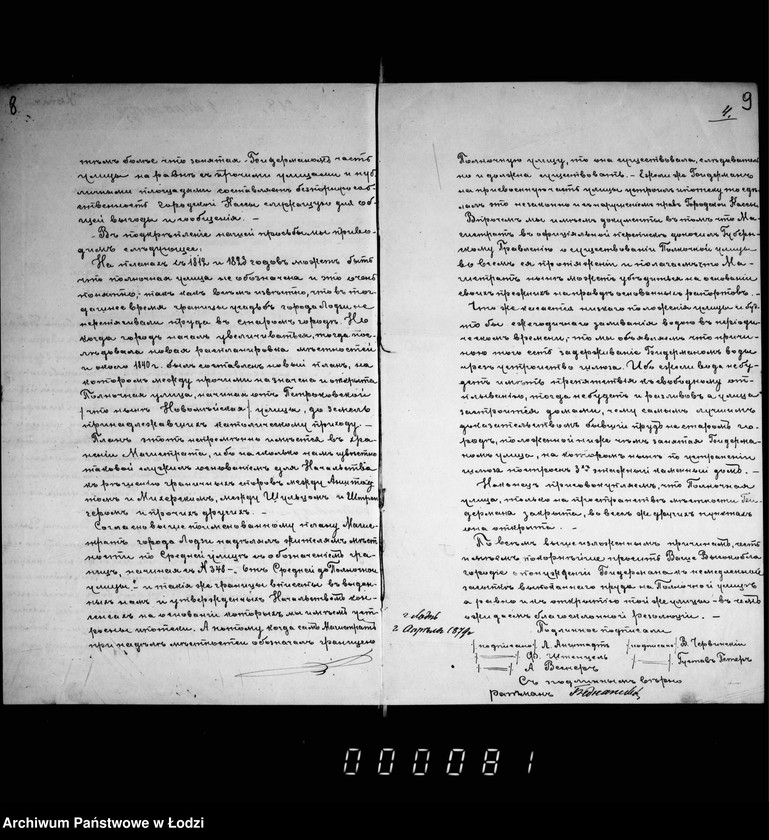 8
тѣмъ болѣе что занятая Гойдерманомъ часть
улицы на равнѣ съ прочими улицами и пуб-
личными площадями составляетъ безспорную соб-
ственность Городской Кассы служащую для об-
щей выгоды и сообщенія. —
Въ подкрѣпленіе нашей просьбы мы приво-
димъ слѣдующее:
На планахъ съ 1812 и 1823 годовъ можетъ быть
что полночная улица не обозначена и это очень
понятно, такъ какъ всѣмъ извѣстно, что въ тог-
дашнее время границы усадьбъ города Лодзи, не
перешагивали пруда въ старомъ городѣ. Но
когда городъ началъ увеличиваться, тогда пос-
лѣдовала новая распланировка мѣстностей
и около 1840 г. былъ составленъ новый планъ, на
которомъ между прочими назначена и открыта
Полночная улица, начиная отъ Петроковской
/что нынѣ Новомѣйская/ улицы, до земель
принадлежавшихъ католическому приходу. —
Планъ этотъ непремѣнно имѣется въ хра-
неніи Магистрата, ибо на сколько намъ извѣстно
таковой служилъ основаніемъ для Начальства
къ рѣшенію граничныхъ споровъ между Анштад-
томъ и Михерскимъ, между Шульцомъ и
геромъ и прочихъ другихъ. —
Согласно выше поименованному плану Маги-
стратъ города Лодзи надѣлялъ жителямъ мѣст-
ности по Средней улицѣ съ обозначеніемъ гра-
ницъ, начиная съ № 348 —. Отъ Средней до Полночной
улицы" и такія же границы вписаны въ выдан-
ныхъ намъ и утвержденныхъ Начальствомъ кон-
сенсахъ на основаніи которыхъ мы имѣемъ уст-
роенные ипотеки. А потому когда самъ Магистратъ
при надѣлѣ мѣстностей обозначалъ границею
9
4.
Полночную улицу, то она существовала, слѣдователь-
но и должна существовать. — Ежели же Гойдерманъ
на присвоенную часть улицы устроилъ ипотеку то сдѣ-
лалъ это незаконно и съ нарушеніемъ правъ Городской Кассы.
Впрочемъ мы имѣемъ документы въ томъ что Ма-
гистратъ въ официальной перепискѣ доносилъ Губерн-
скому Правленію о существованіи Полночной улицы
во всемъ ея протяженіи и полагаемъ что Ма-
гистратъ нынѣ можетъ убѣдиться на основаніи
своихъ прежнихъ на правдѣ основанныхъ рапортовъ. —
Что же касается низкаго положенія улицы и буд-
то бы ежегоднаго заливанія водою въ періоди-
ческомъ времени, то мы объявляемъ что причи-
ною того есть задерживаніе Гойдерманомъ воды
чрезъ устройство шлюза. Ибо ежели вода не бу-
детъ имѣть препятствія къ свободному от-
плыванію, тогда не будетъ и разливовъ а улица
застроится домами, чему самымъ лучшимъ
доказательствомъ бывшій прудъ на старомъ го-
родѣ, положенной ниже чѣмъ занятая Гойдерма-
номъ улица, на которомъ нынѣ по устраненіи
шлюза построенъ 3хъ этажный каменный домъ. —
Наконецъ присовокупляемъ, что Полночная
улица, только на пространствѣ мѣстности Гой-
дермана закрыта, во всехъ же другихъ пунктахъ
она открыта. —
По всѣмъ выше изложеннымъ причинамъ, честь
имѣемъ покорнѣйше просить Ваше Высокобла-
городіе о понужденіи Гойдермана къ немедленной
засыпкѣ выкопаннаго пруда на Полночной улицѣ
а равно и къ открытію той же улицы — въ чемъ
ожидаемъ благосклонной резолюціи. —
г. Лодзь
Апрѣля 1879 г.
Подлинное подписали
/подписано/ Л. Анштадтъ /подписано/ В. Червинскій
/—/ Ф. Штенцель /—/ Густавъ Гетеръ
/—/ А. Веснеръ
Съ подлиннымъ вѣрно
Ратманъ
000081
Archiwum Państwowe w Łodzi